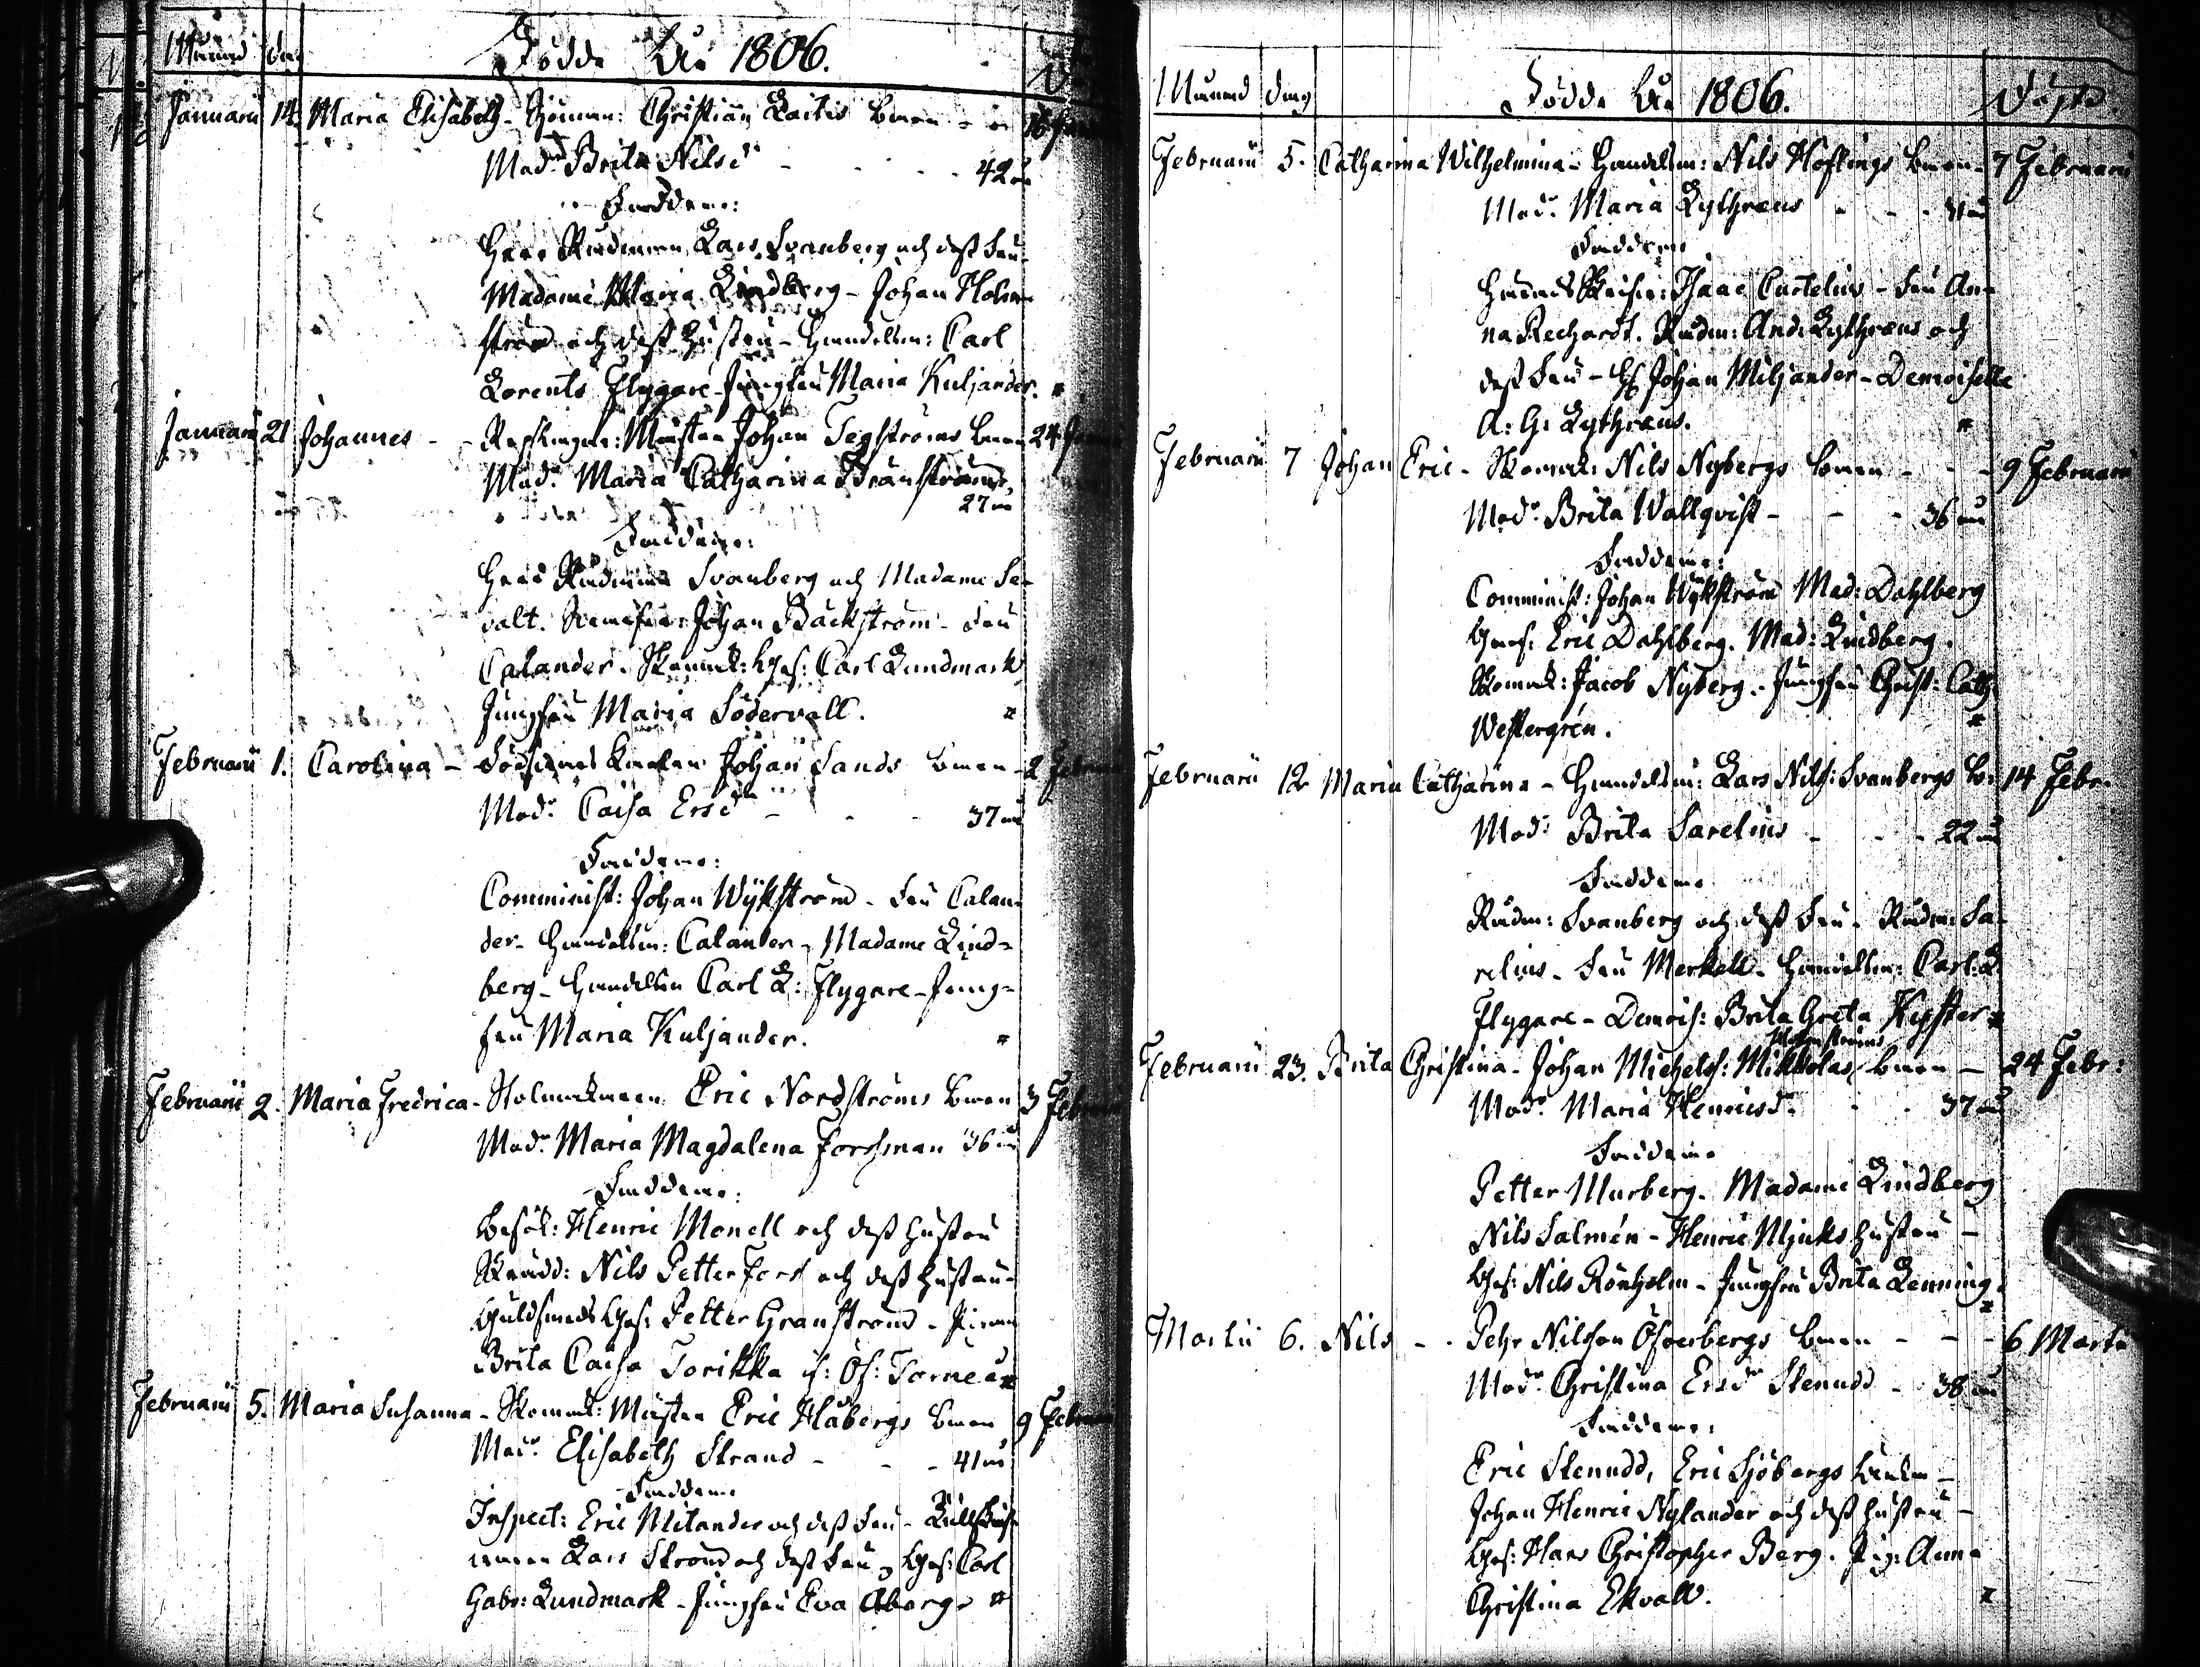 Månad dag Födde År 1806.
Januarii 14. Maria Elisabeth - Christian Laitis barn 16 Jan
Modr Brita Nilsdr - - - 42 år
Faddrar:
Herr Rådman Lars Svanberg och dess Fru
Madame Maria Lindberg - Johan Holm
ström och dess hustru - Handelsm: Carl
Lorents Flygare - Jungfru Maria Kuljander.
Januarii 21 Johannes - - Mästar Johan Tegströms barn 24
Modr Maria Catharina Branström
27 år
Faddrar:
Herr Rådman Svanberg och Madame Sa-
valt. Johan Backström - Fru
Calander. Skomak: Ges: Carl Lundmark
Jungfru Maria Södervall.
Februarii 1. Carolina - Johan Sands barn - 2 Febru
Modr Caisa Ersdr - - - 37 år
Faddrar:
Comminist: Johan Wykström - Fru Calan-
der - Handelsm: Calander - Madame Lind-
berg - Handelsm Carl L: Flygare - Jung-
fru Maria Kuljander.
Februarii 2. Maria Fredrica - Stolmakaren Eric Nordströms barn 3 Febru
Modr Maria Magdalena Forssman 36 år
Faddrar:
Besök: Henric Monell och dess hustru
Skrädd: Nils Petter Fors och dess hustru -
Guldsmeds Ges: Petter Granström - Pigan
Brita Caisa Torikka if: Öf: Torneå
Februarii 5. Maria Susanna - Skomak: Mästar Eric Åbergs barn 9 Febru
Modr Elisabeth Strand - - - 41 år
Faddrar
Inspect: Eric Melander och dess Fru -
Lars Ström och dess Fru - Ges: Carl
Gabr: Lundmark - Jungfru Eva Åberg.
Månad dag Födde År 1806. Döpte.
Februarii 5. Catharina Wilhelmina - Handelsm: Nils Höflings barn - 7 Februarii
Modr Maria Lythræus - - - 31 år
Faddrar
Isaac Curtelius - Fru An-
na Rechardt. Rådm: And: Lythræus och
dess Fru - H: Johan Miljander - Demoiselle
A: G: Lythræus.
Februarii 7 Johan Eric - Skomak: Nils Nybergs barn - - - 9 Februarii
Modr Brita Wallqvist - - - 36 år
Faddrar:
Comminist: Johan Wykström Mad: Dahlberg
Eric Dahlberg. Mad: Lindberg.
Skomak: Jacob Nyberg. - Jungfru Christ: Cath:
Westergrén.
Februarii 12 Maria Catharina - Handelsm: Lars Nils: Svanbergs b: 14 Febr.
Modr Brita Sarelius - - - 22 år
Faddrar
Rådm: Svanberg och dess Fru - Rådm: Sa-
relius - Fru Merkell - Handelsm: Carl: L.
Flygare - Demois: Brita Greta Kyster
Februarii 23. Brita Christina - Johan Michels: barn - 24 Febr:
Modr Maria Henricsdr - - 37 år
Faddrar
Petter Murberg. Madame Lindberg
Nils Salmén - Henric Mjuks hustru -
Ges: Nils Rönholm - Jungfru Brita Lenning.
Martii 6. Nils - - Pehr Nilsson Öfverbergs barn - - - 6 Martii
Modr Christina Ersdr Stenudd - 38 år
Faddrar:
Eric Stenudd, Eric Sjöbergs
Johan Henric Nylander och dess hustru -
Ges: Hans Christopher Berg. Pig: Anna
Christina Ekvall.